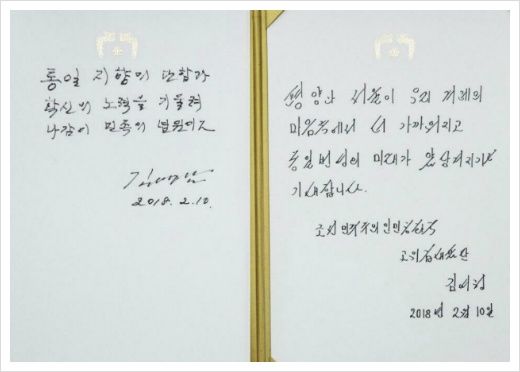 통일 지향의 단합과
확신의 노력을 기울려
나감이 민족의 념원이오
김영남
2018.2.10.
평양과 서울이 우리 겨레의
마음속에서 더 가까워지고
통일번영의 미래가 앞당겨지기를
기대합니다.
조선민주주의인민공화국
고위급대표단
김여정
2018년 2월 10일